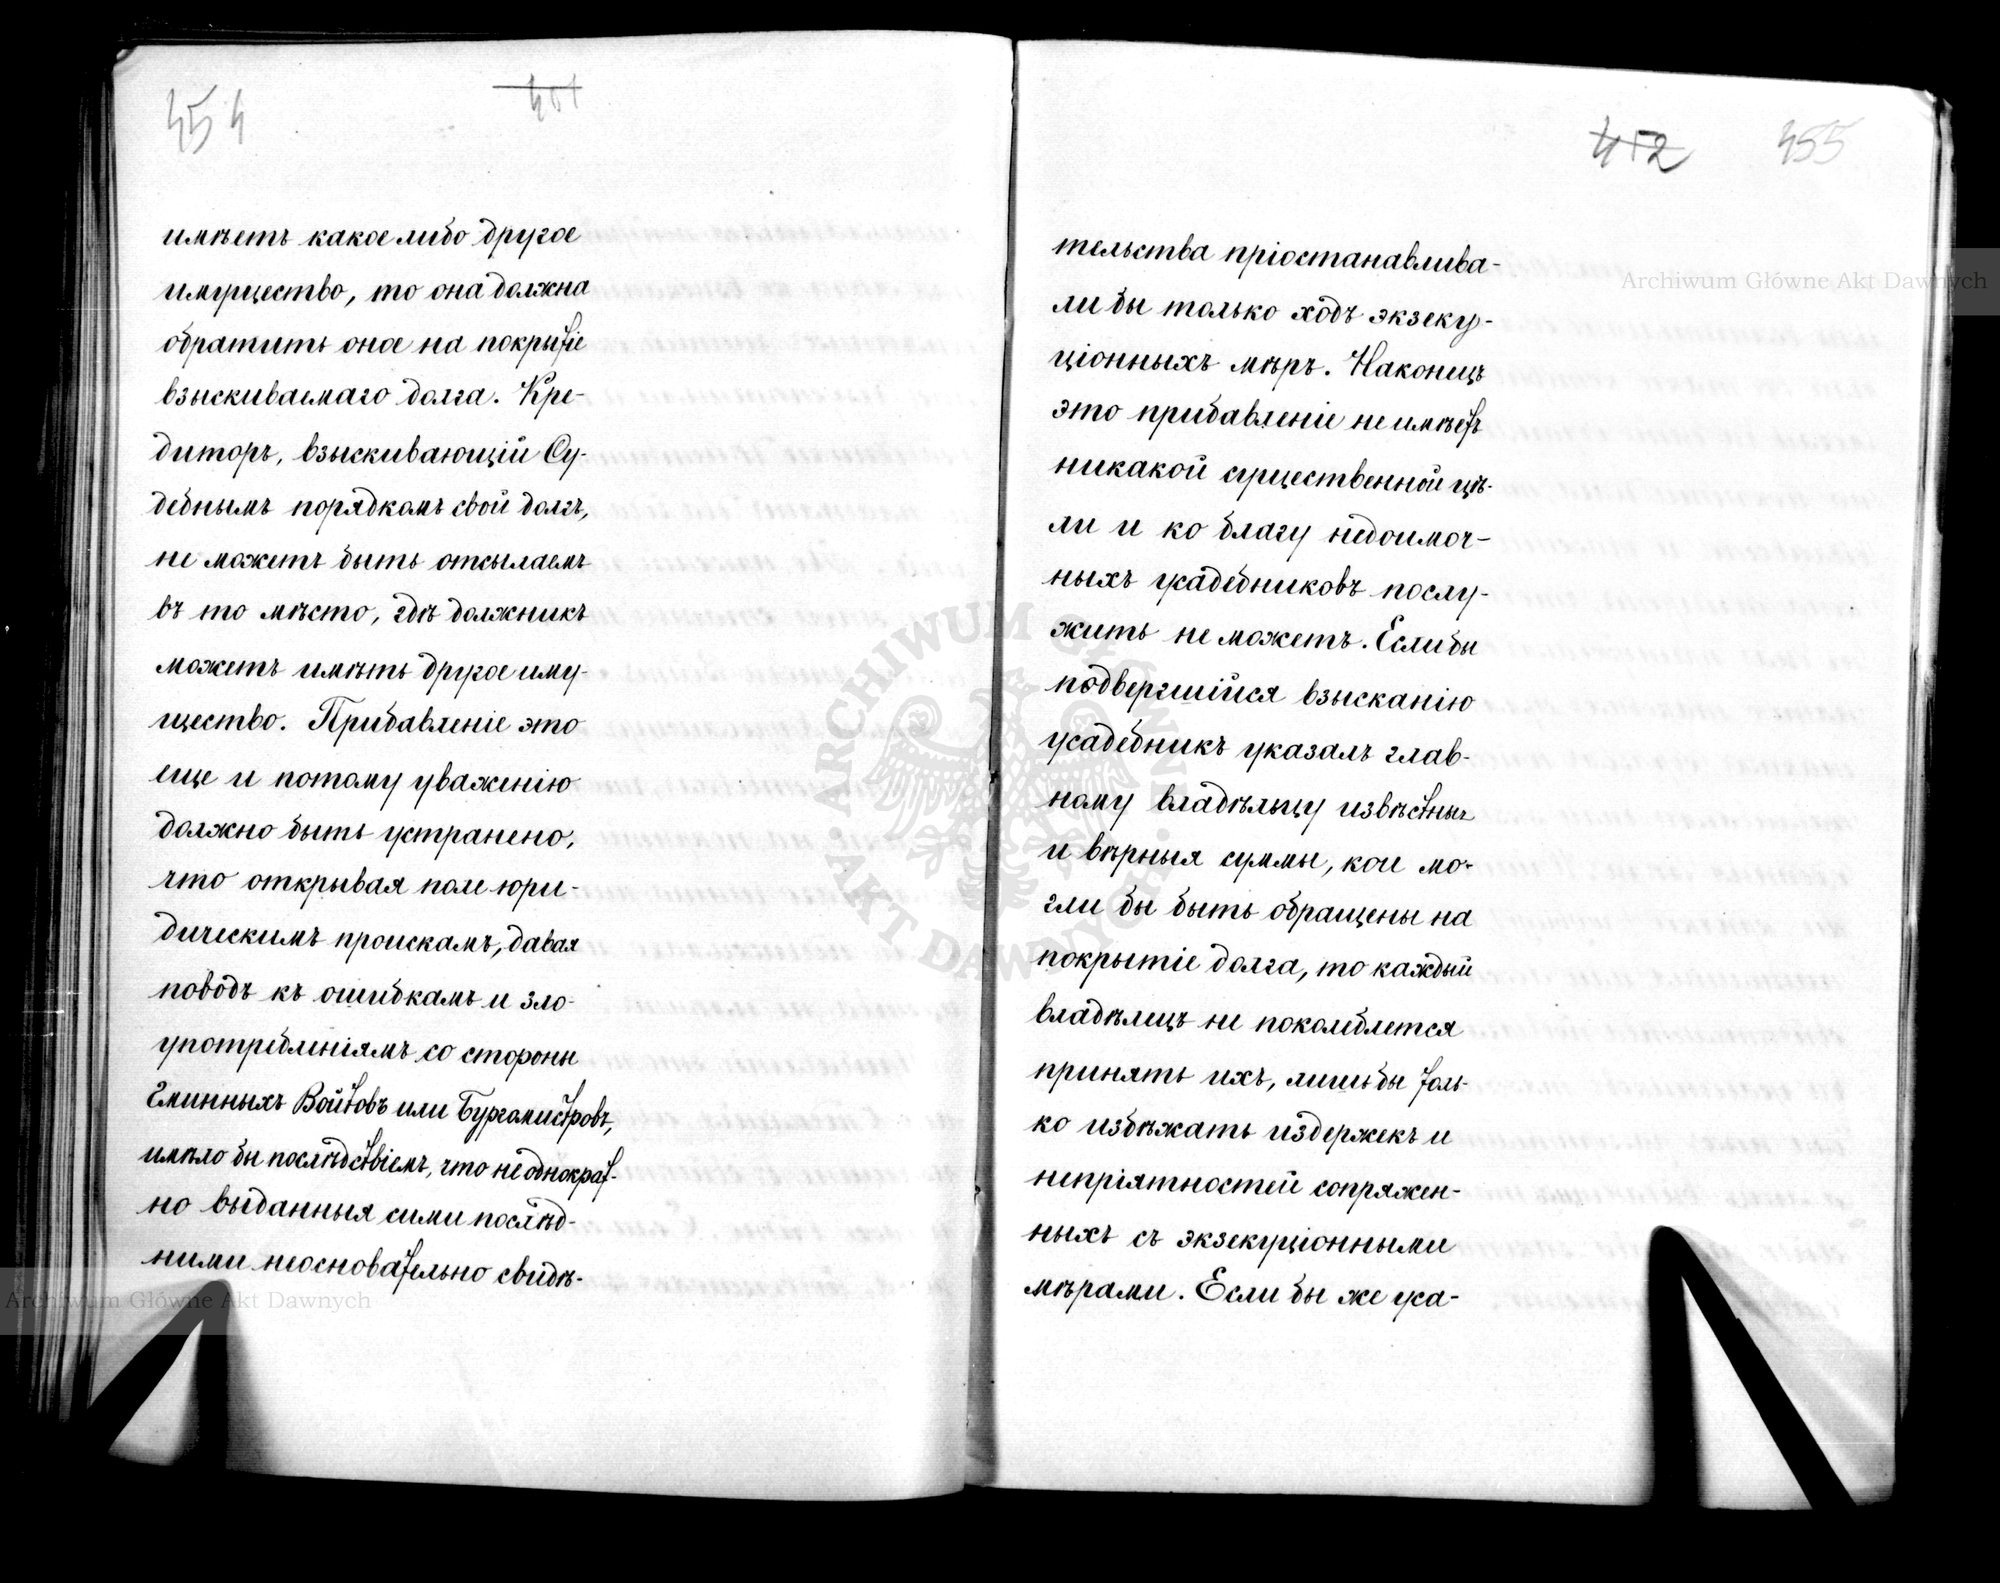 454
451
имѣетъ какое либо другое
имущество, то она должна
обратить оное на покрытіе
взыскиваемаго долга. Кре-
диторъ, взыскивающій Су-
дебнымъ порядкомъ свой долгъ,
не можетъ быть отсылаемъ
въ то мѣсто, гдѣ должникъ
можетъ имѣть другое иму-
щество. Прибавленіе это
еще и потому уваженію
должно быть устранено,
что открывая поле юри-
дическимъ проискамъ, давая
поводъ къ ошибкамъ и зло-
употребленіямъ со стороны
Гминныхъ Войтовъ или Бургомистровъ,
имѣло бы послѣдствіемъ, что не однократ-
но выданныя сими послѣд-
ними неосновательно свидѣ-
452
455
тельства пріостанавлива-
ли бы только ходъ экзеку-
ціонныхъ мѣръ. Наконецъ
это прибавленіе не имѣетъ
никакой существенной цѣ-
ли и ко благу недоимоч-
ныхъ усадебниковъ послу-
жить не можетъ. Если бы
подвергшійся взысканію
усадебникъ указалъ глав-
ному владѣльцу извѣстныя
и вѣрныя суммы, кои мо-
гли бы быть обращены на
покрытіе долга, то каждый
владѣлецъ не поколеблется
принять ихъ, лишь бы толь-
ко избѣжать издержекъ и
непріятностей сопряжен-
ныхъ съ экзекуціонными
мѣрами. Если бы же уса-
Archiwum Główne Akt Dawnych
Archiwum Główne Akt Dawnych
ARCHIWUM GŁÓWNE AKT DAWNYCH